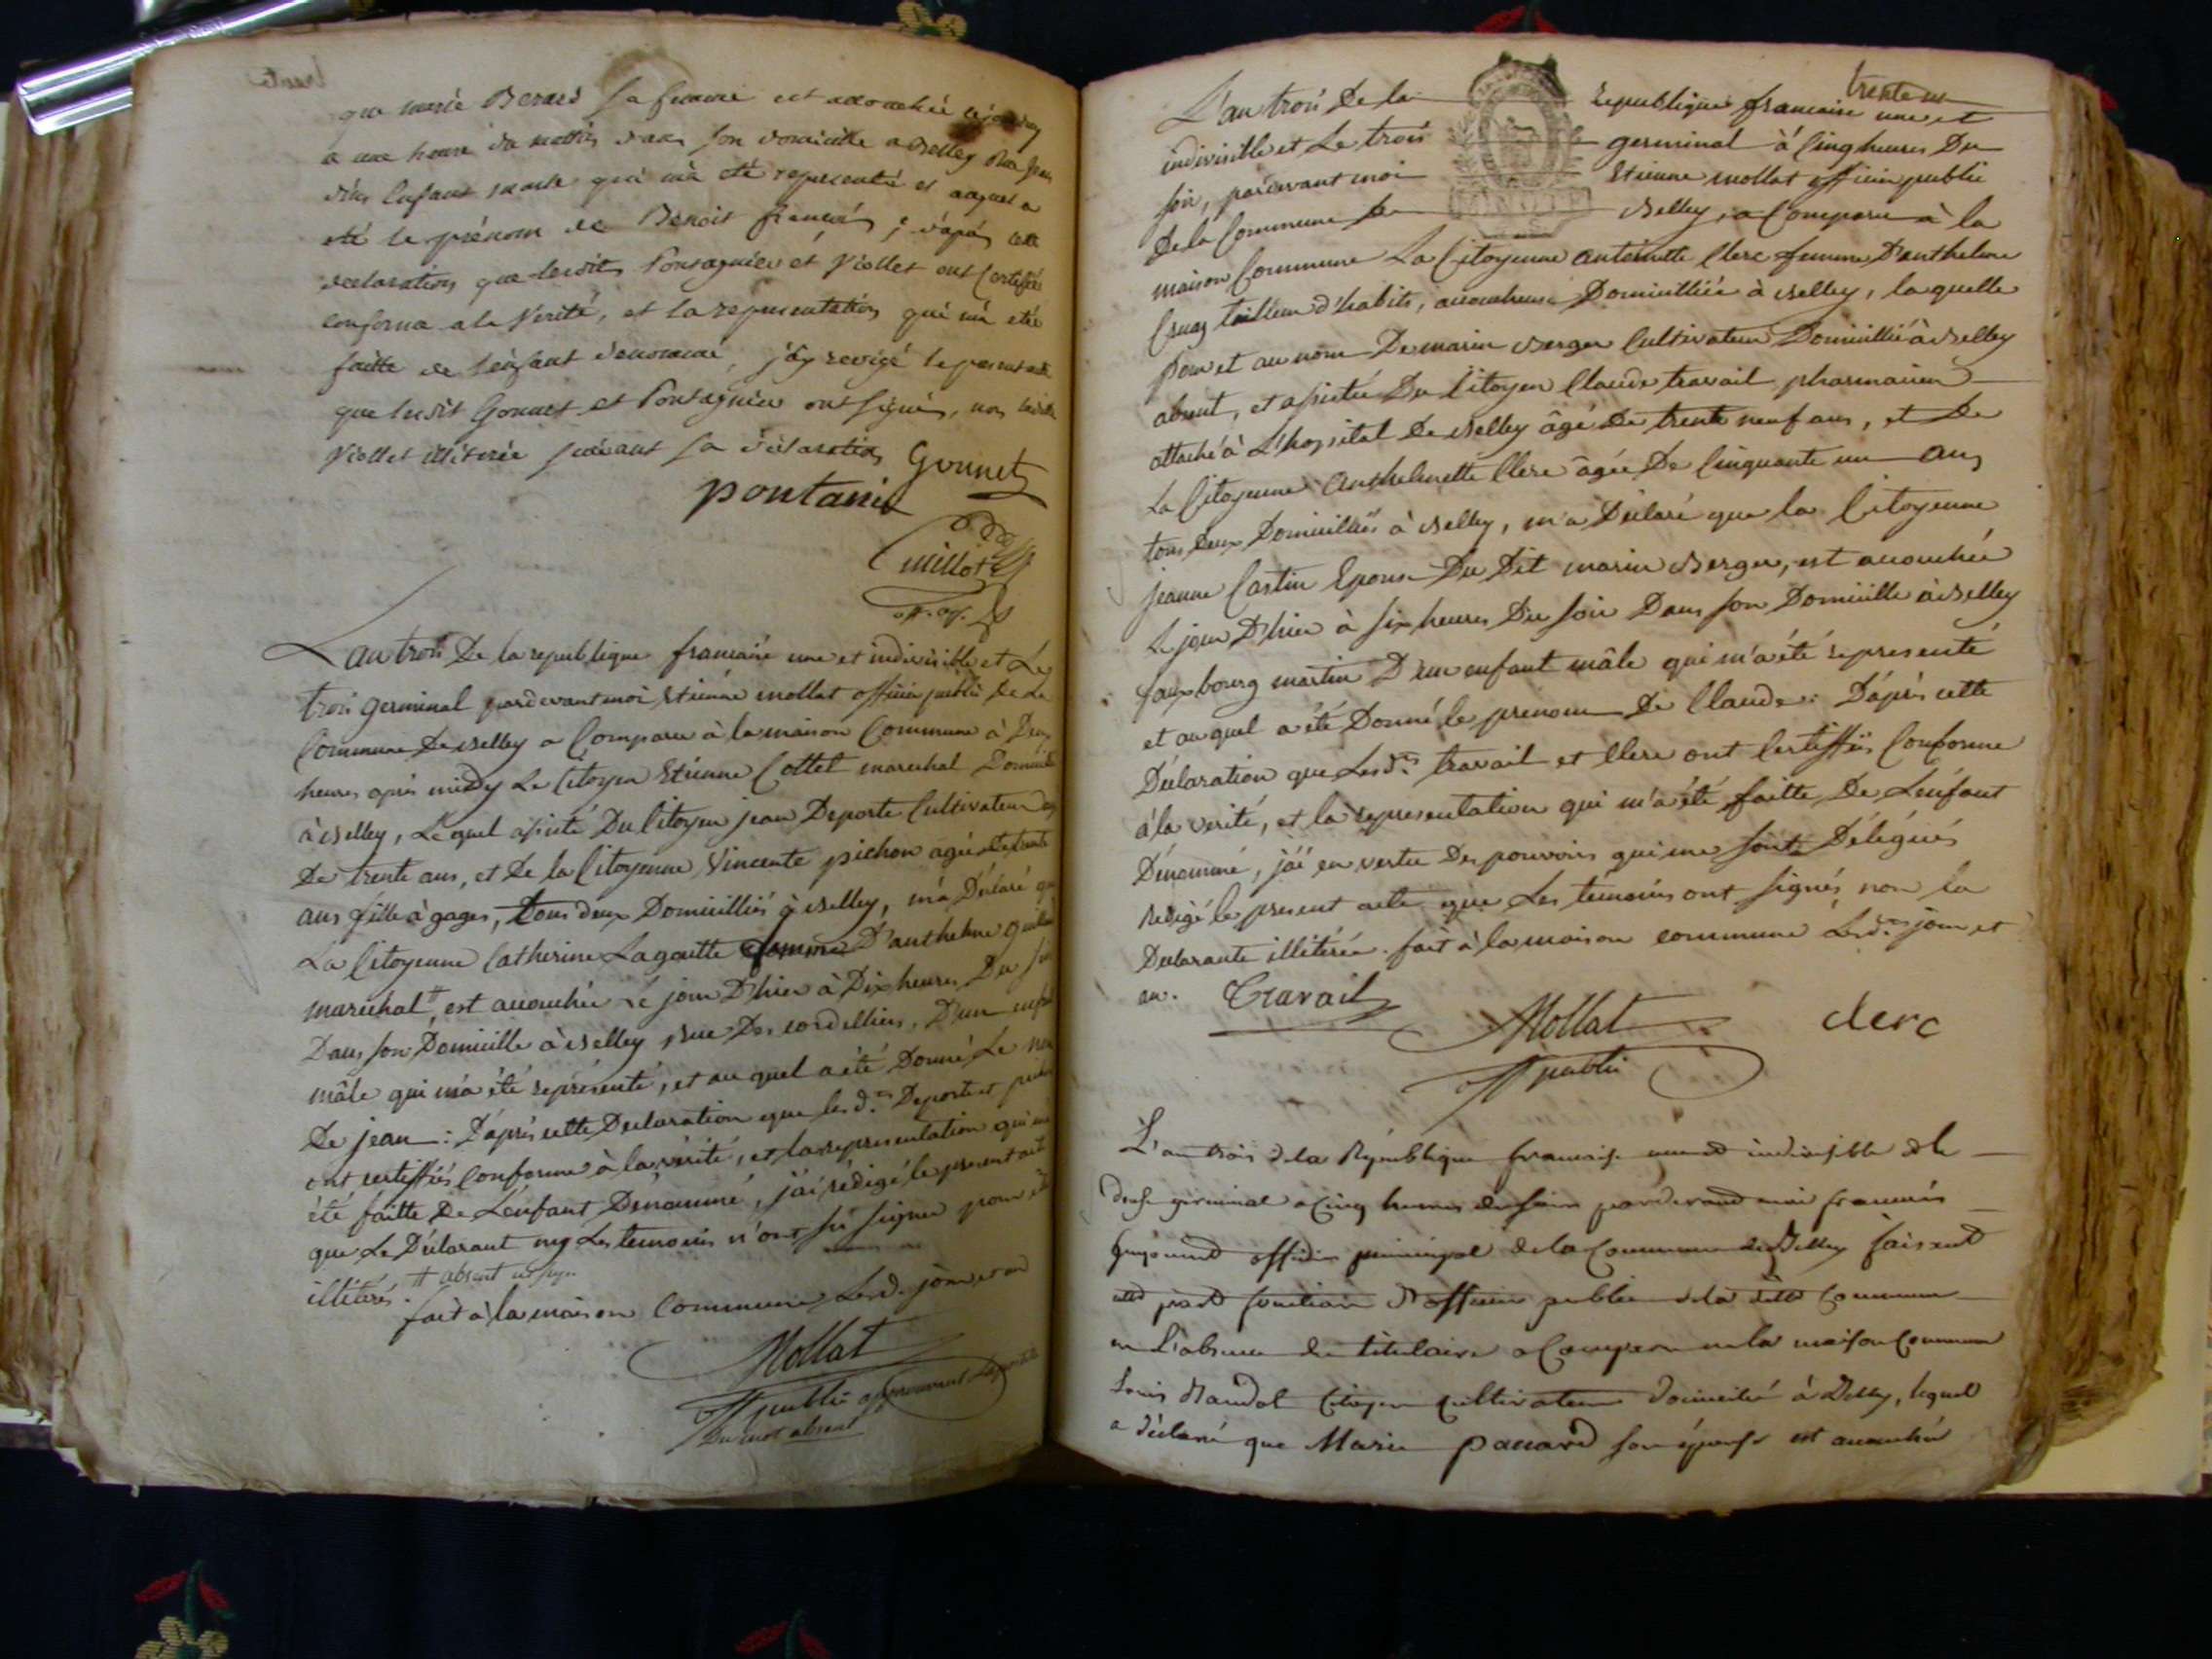 que marie Berard sa femme est accouchée cejourdhuy
a une heure du mattin dans son domicille a Belley Rue Jean
d'un Enfant masle qui m'a eté representé et auquel a
eté le prénom de Benoit françois ; d'apres cette
declaration que lesdits Pontagnier et Viollet ont Certifié
conforme a la Verité, et la representation qui m'a eté
faitte de l'enfant denommé, j'ay redigé le present acte
que lesdit Gonnet et Pontagnier ont signés, non ladite
Viollet illiterée suivant sa déclaration Gonnet
pontanie
Cuillot
off. m.
L'an trois De la republique francaise une et indivisible et Le
trois germinal pardevant moi Etienne mollat officier public De La
Commune De Belley a Comparu à la maison Commune à Deux
heures après midy Le Citoyen Etienne Cottet marechal Domicilié
à Belley, Lequel assisté Du Citoyen jean Deporte Cultivateur agé
De trente ans, et De la Citoyenne Vincente pichon agée de trente
ans fille à gages, tous deux Domicilliés à Belley, m'a Déclaré que
La Citoyenne Catherine Lagoutte femme D'anthelme
marechal #, est accouchée Le jour D'hier à Dix heures Du soir
Dans son Domicille à Belley Rue Des cordelliers, D'un enfant
mâle qui m'a été représenté, et au quel a été Donné Le nom
De jean : D'après cette Declaration que les d.ts Deporte et pichon
ont certiffiés Conforme à la vérité, et la representation qui m'a
été faitte De L'enfant Denommé, j'ai rédigé le present acte
que Le Déclarant ny Les temoins n'ont sû signer pour être
illitérés. # absent
fait à la maison Commune Lesd. jour et an
Mollat
off public approuvant
Du mot absent
trente un
L'an trois De la republique francaise une et
indivisible et Le trois germinal à Cinq heures Du
soir, pardevant moi Etienne mollat officier public
De la Commune De Belley, a Comparu à la
maison Commune La Citoyenne antoinette Clerc femme D'anthelme
Cruaz tailleur d'habits, accoucheuse Domicilliée à Belley, laquelle
pour et au nom De marin Berger Cultivateur Domicillié à Belley
absent, et assistée Du Citoyen Claude travail pharmacien
attaché à L'hopital De Belley âgé De trente neuf ans, et De
La Citoyenne Anthelmette Clerc âgée De Cinquante un ans
tous Deux Domicilliés à Belley, m'a Déclaré que la Citoyenne
jeanne Castin Epouse Du Dit marin Berger, est accouchée
Le jour D'hier à six heures Du soir Dans son Domicille à Belley
faux bourg martin D'un enfant mâle qui m'a été representé
et auquel a été Donné le prenom De Claude : D'après cette
Déclaration que Lesd.ts travail et Clerc ont Certiffiés Conforme
à la verité, et la representation qui m'a été faitte De L'enfant
Dénommé, j'ai en vertu Des pouvoirs qui me sont Délégués
redigé le present acte que Les témoins ont signés, non la
Declarante illitérée. fait à la maison commune Lesd.ts jour et
an. Travail
Mollat clerc
off public
L'an trois de la République francaise une et indivisible et le
germinal a Cinq heures du soir pardevant moi francois
officier municipal de la Commune de Belley faisant
fonction d'officier public de la ditte Commune
en L'absence du titulaire a Comparu en la maison Commune
Louis Citoyen Cultivateur domicilié à Belley, lequel
a déclaré que Marie Pauard son épouse est accouchée